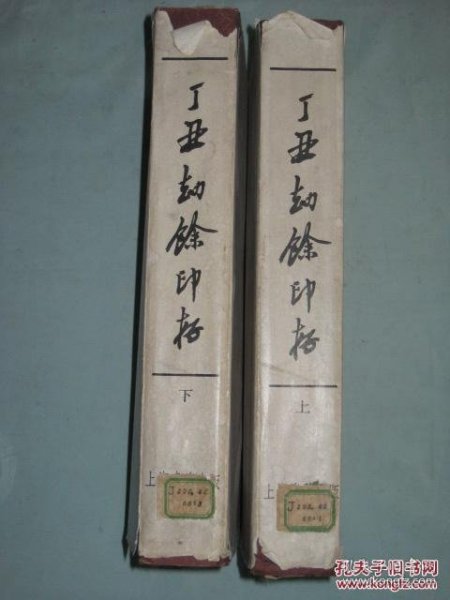 丁丑劫餘印存
下
上
J 292.42
丁丑劫餘印存
上
上
版
J 292.42
孔夫子旧书网
www.kongfz.com